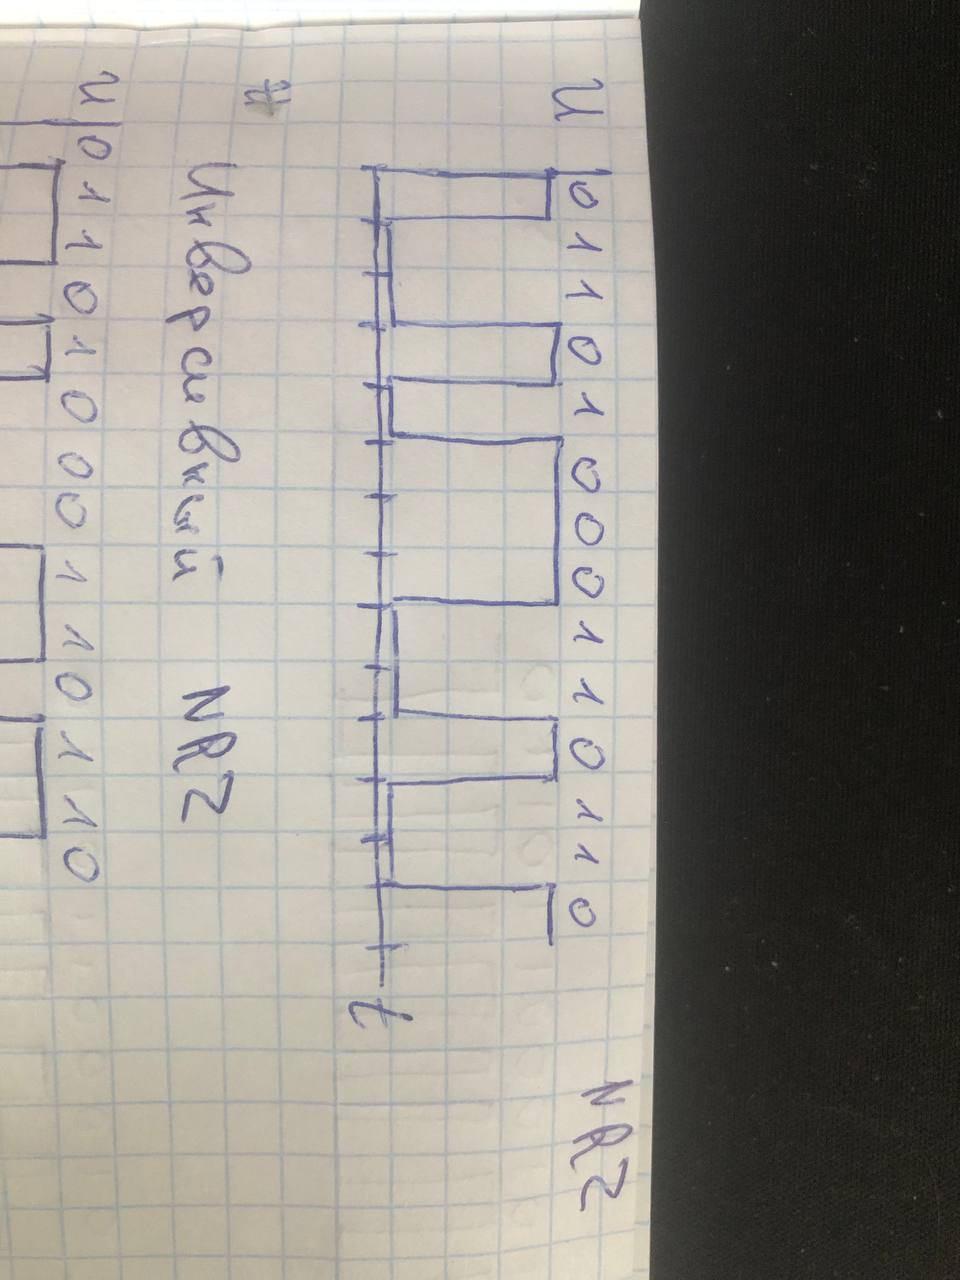 U 0 1 1 0 1 0 0 0 1 1 0 1 1 0 NRZ
t
Инверсивный NRZ
U 0 1 1 0 1 0 0 0 1 1 0 1 1 0